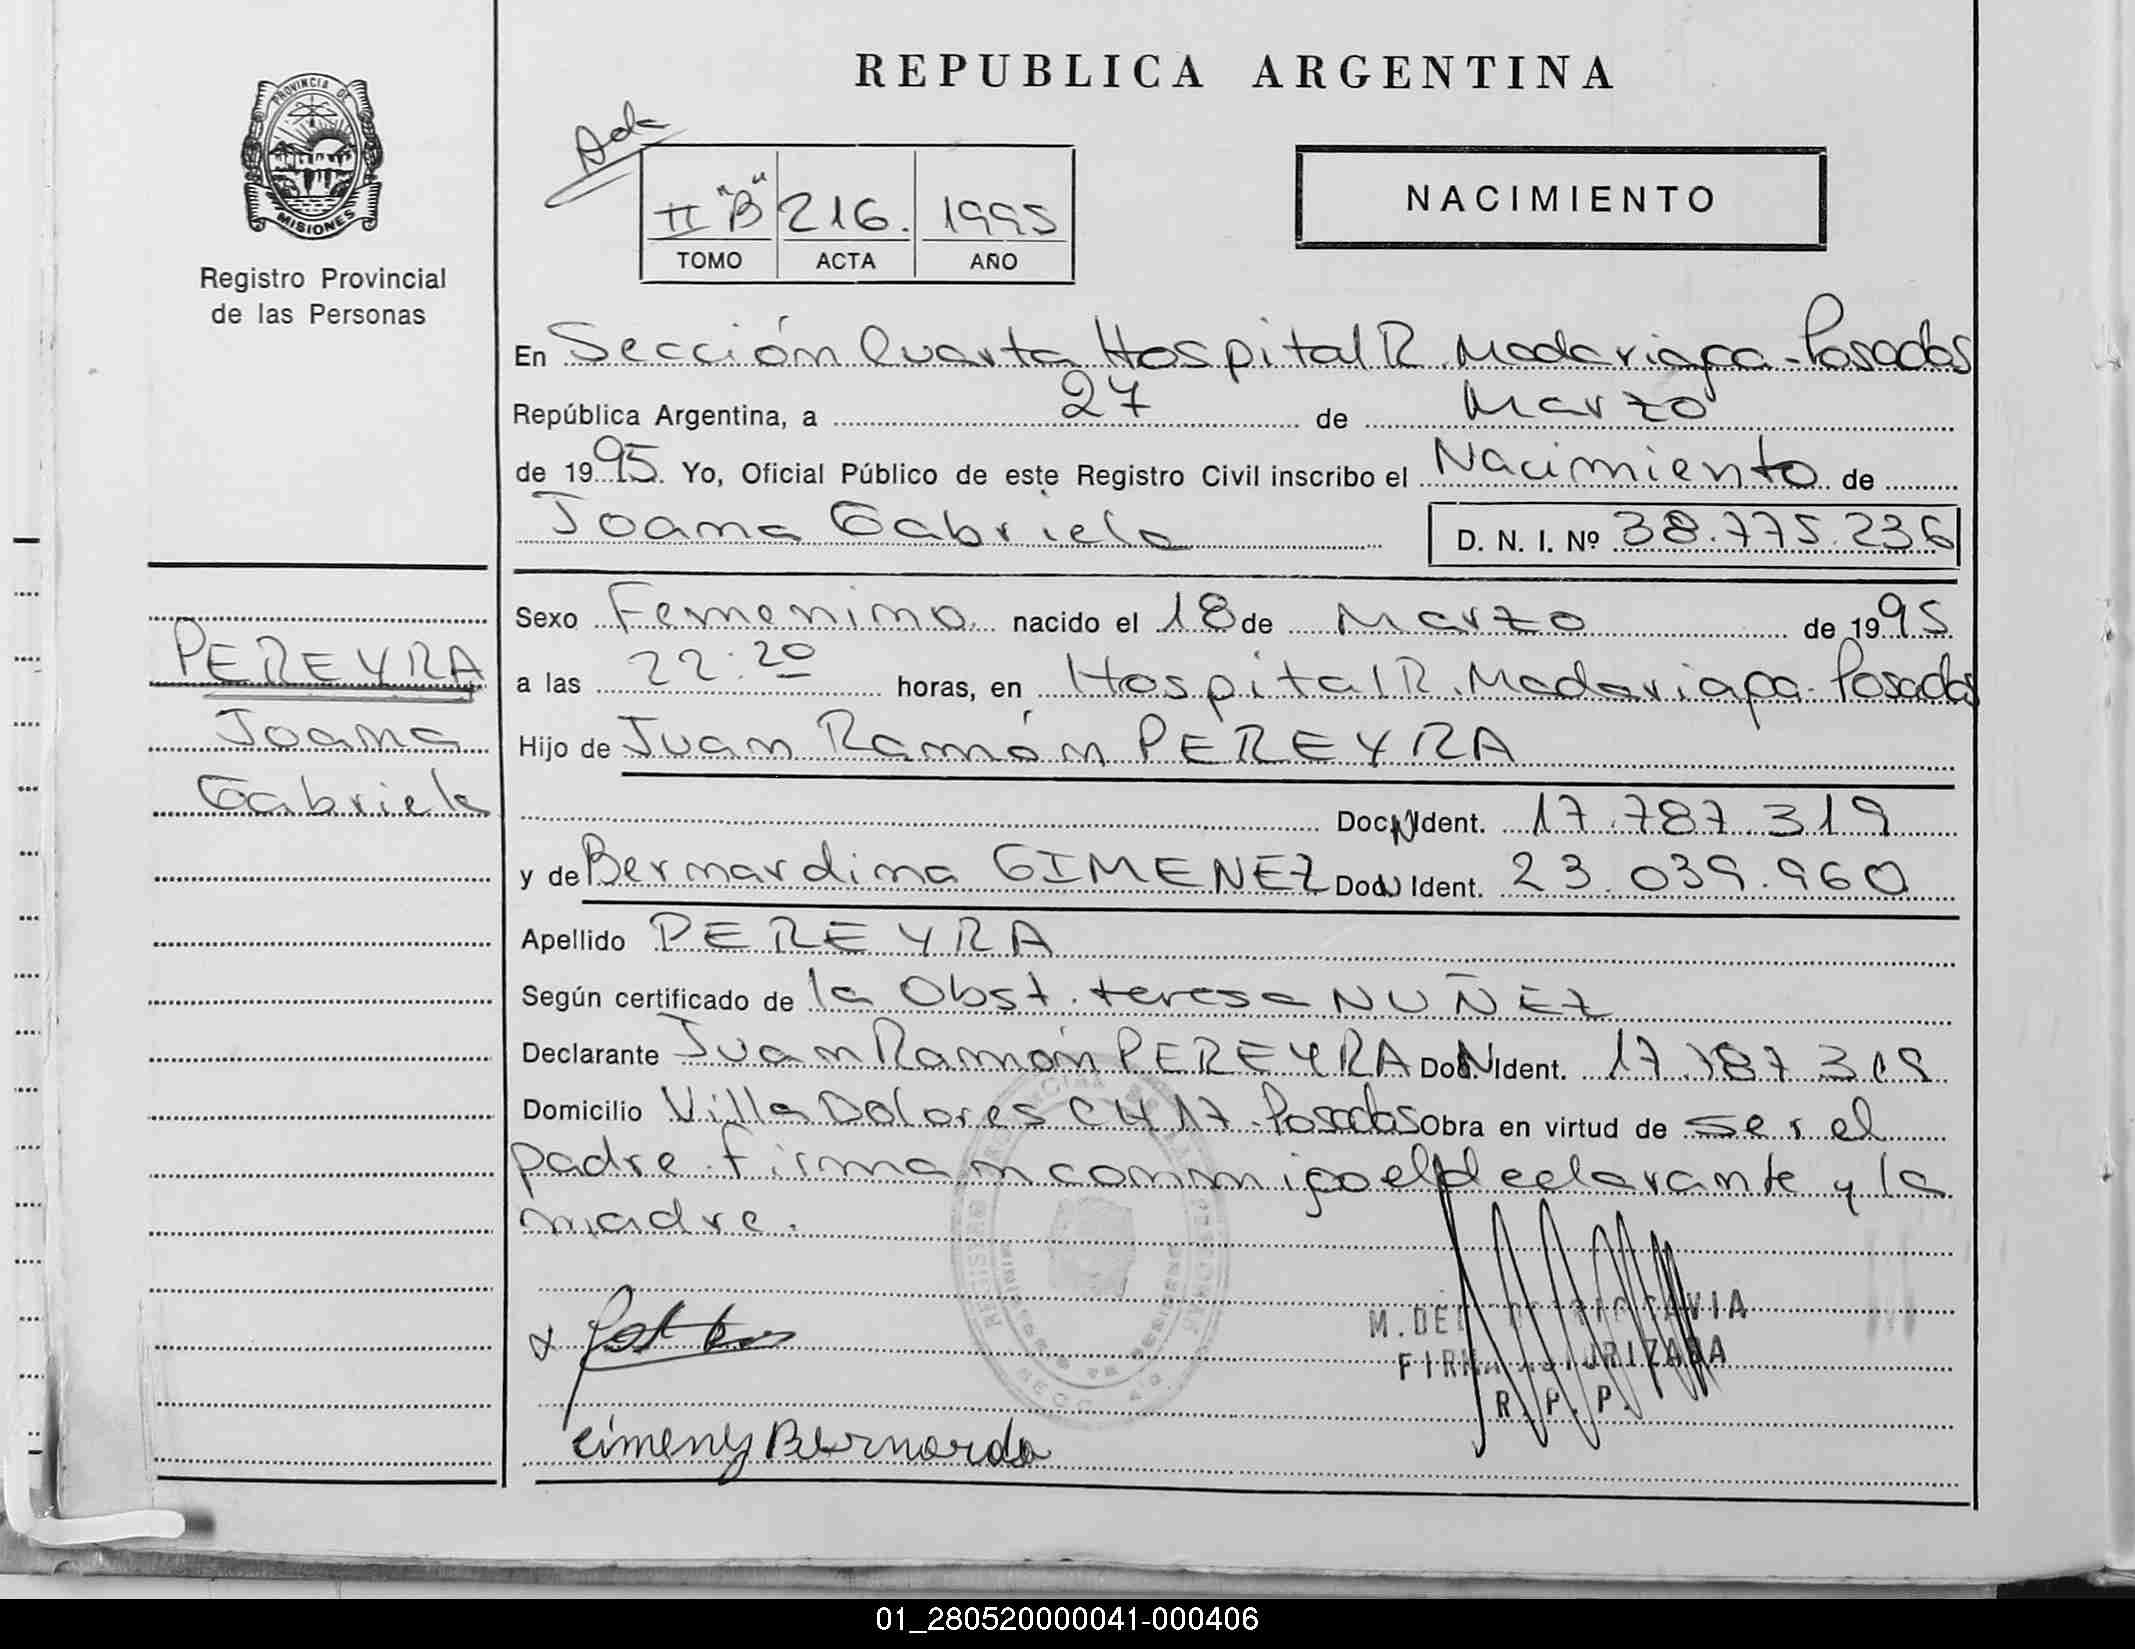 REPUBLICA ARGENTINA
PROVINCIA DE
MISIONES
Registro Provincial
de las Personas
II "B" 216. 1995
TOMO ACTA AÑO
NACIMIENTO
En Sección Cuarta Hospital R. Madariaga - Posadas
República Argentina, a 27 de Marzo
de 1995. Yo, Oficial Público de este Registro Civil inscribo el Nacimiento de
Joana Gabriela D. N. I. Nº 38.775.236
Sexo Femenino nacido el 18 de Marzo de 1995
a las 22:20 horas, en Hospital R. Madariaga - Posadas
Hijo de Juan Ramón PEREYRA
Doc. N Ident. 17.787.319
y de Bernardina GIMENEZ Doc. N Ident. 23.039.960
Apellido PEREYRA
Según certificado de la Obst. teresa NUÑEZ
Declarante Juan Ramón PEREYRA Doc. N Ident. 17.787.319
Domicilio Villa Dolores CH 17 - Posadas Obra en virtud de ser el
padre. firman conmigo el declarante y la
madre.
PEREYRA
Joana
Gabriela
M. DEL
FIRMA AUTORIZADA
R. P. P.
Bernarda
01_280520000041-000406